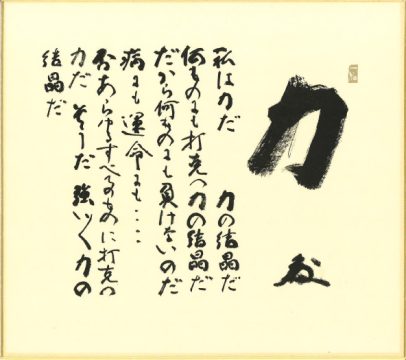 力
私は力だ 力の結晶だ
何ものにも打克つ力の結晶だ
だから何ものにも負けないのだ
病にも運命にも・・・・
否あらゆるすべてのものに打克つ
力だ そうだ 強い〱力の
結晶だ